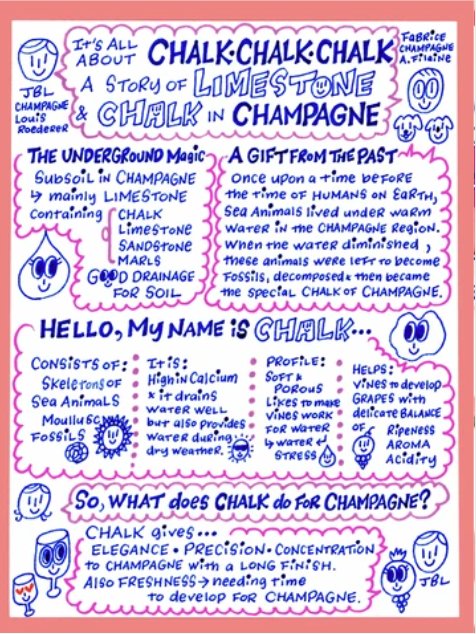 It's ALL ABOUT CHALK·CHALK·CHALK
A STORY OF LIMESTONE
& CHALK in CHAMPAGNE
JBL
CHAMPAGNE
Louis
Roederer
FABRICE
CHAMPAGNE
A. Filaine
THE UNDERGROUND Magic
SUBSOIL in CHAMPAGNE
↳ mainly LIMESTONE
containing
CHALK
LIMESTONE
SANDSTONE
MARLS
GOOD DRAINAGE
FOR SOIL
A GIFT FROM THE PAST
Once upon a time before
the time of HUMANS on EARTH,
Sea Animals lived under warm
WATER in the CHAMPAGNE REGION.
When the WATER diminished,
these animals were left to become
Fossils, decomposed & then became
the special CHALK OF CHAMPAGNE.
HELLO, My NAME is CHALK...
CONSISTS OF:
Skeletons of
Sea Animals
Mollusc
Fossils
It is:
High in Calcium
& it drains
WATER well
but also provides
WATER during
dry weather.
PROFILE:
SOFT &
POROUS
Likes to make
VINES WORK
FOR WATER
↳ WATER
STRESS
HELPS:
VINES to develop
GRAPES with
delicate BALANCE
OF
RIPENESS
AROMA
ACidity
So, WHAT does CHALK do FOR CHAMPAGNE?
CHALK gives...
ELEGANCE · PRECISION · CONCENTRATION
to CHAMPAGNE with a LONG FINISH.
Also FRESHNESS → needing time
to develop FOR CHAMPAGNE.
JBL